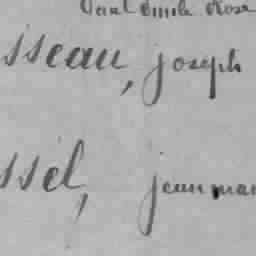 Paul Emile Rose
sseau, joseph
ssel, jean mar